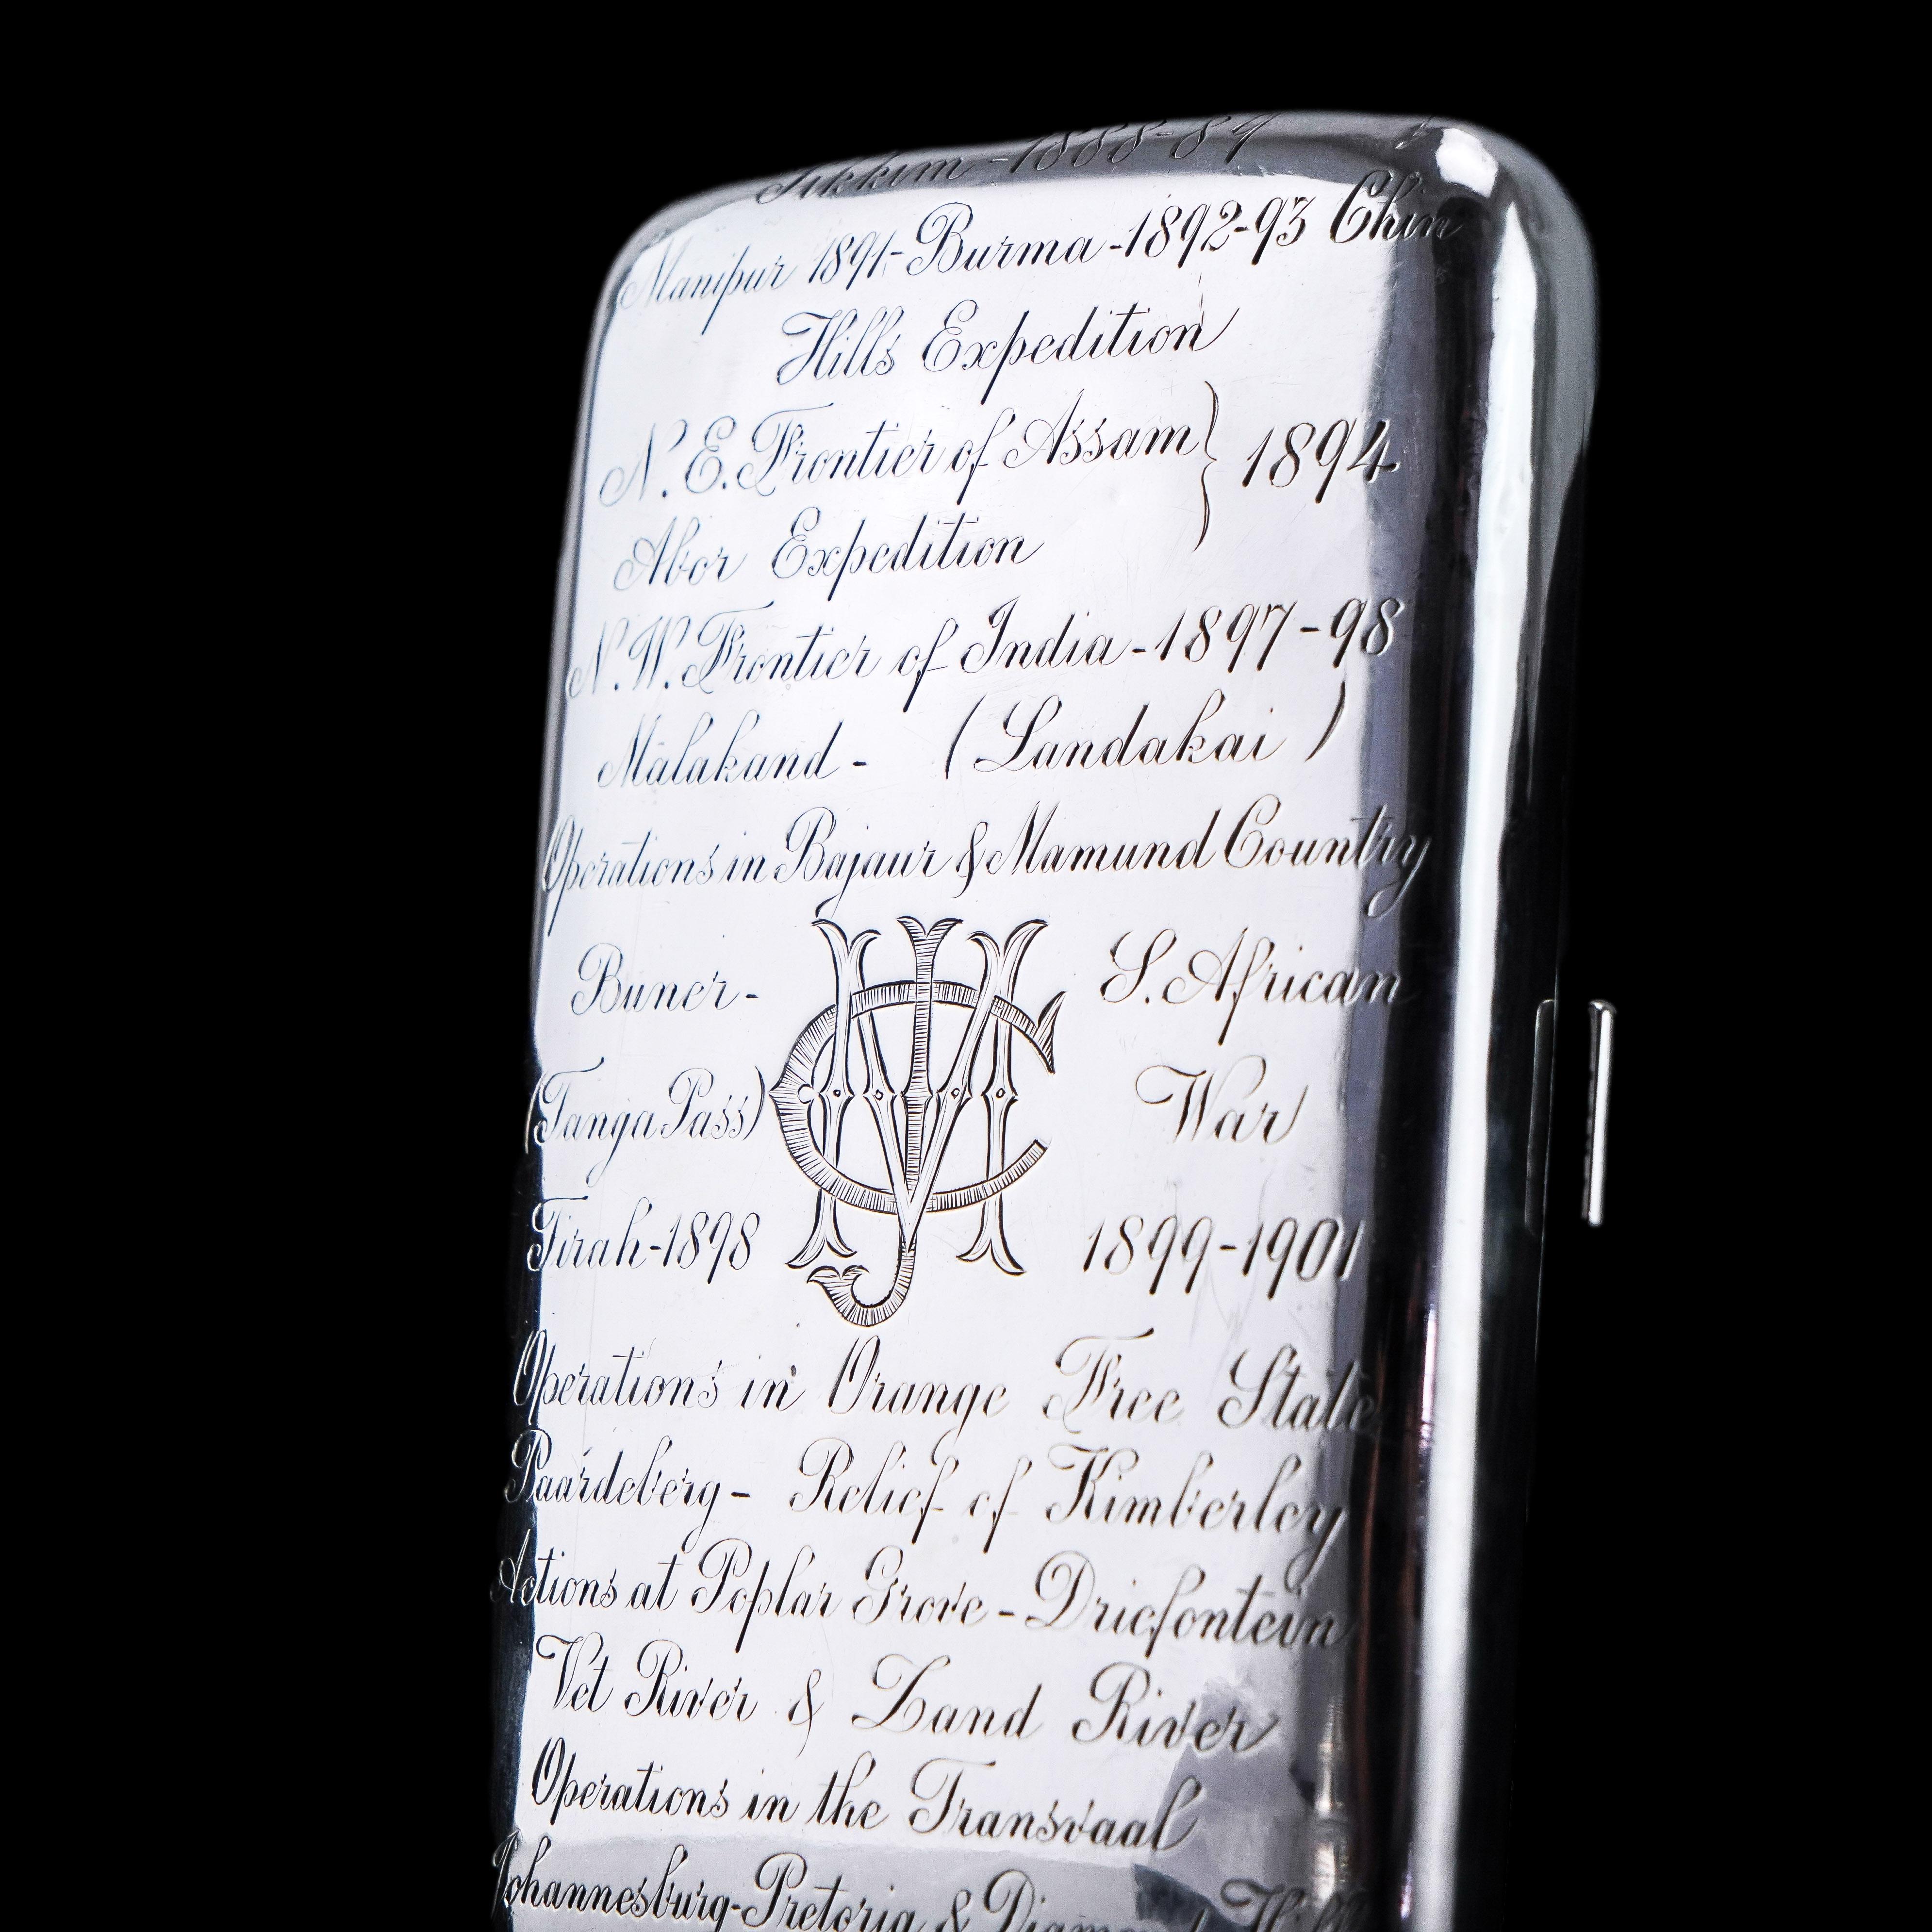 Sikkim - 1888-89
Manipur 1891-Burma-1892-93 Chin
Hills Expedition
N.E. Frontier of Assam } 1894
Abor Expedition
N.W. Frontier of India-1897-98
Malakand - (Landakai)
Operations in Bajaur & Mamund Country
Buner- S. African
(Tanga Pass) War
Tirah-1898 1899-1901
Operations in Orange Free State
Paardeberg - Relief of Kimberley
Actions at Poplar Grove - Driefontein
Vet River & Zand River
Operations in the Transvaal
Johannesburg-Pretoria & Diamond Hill